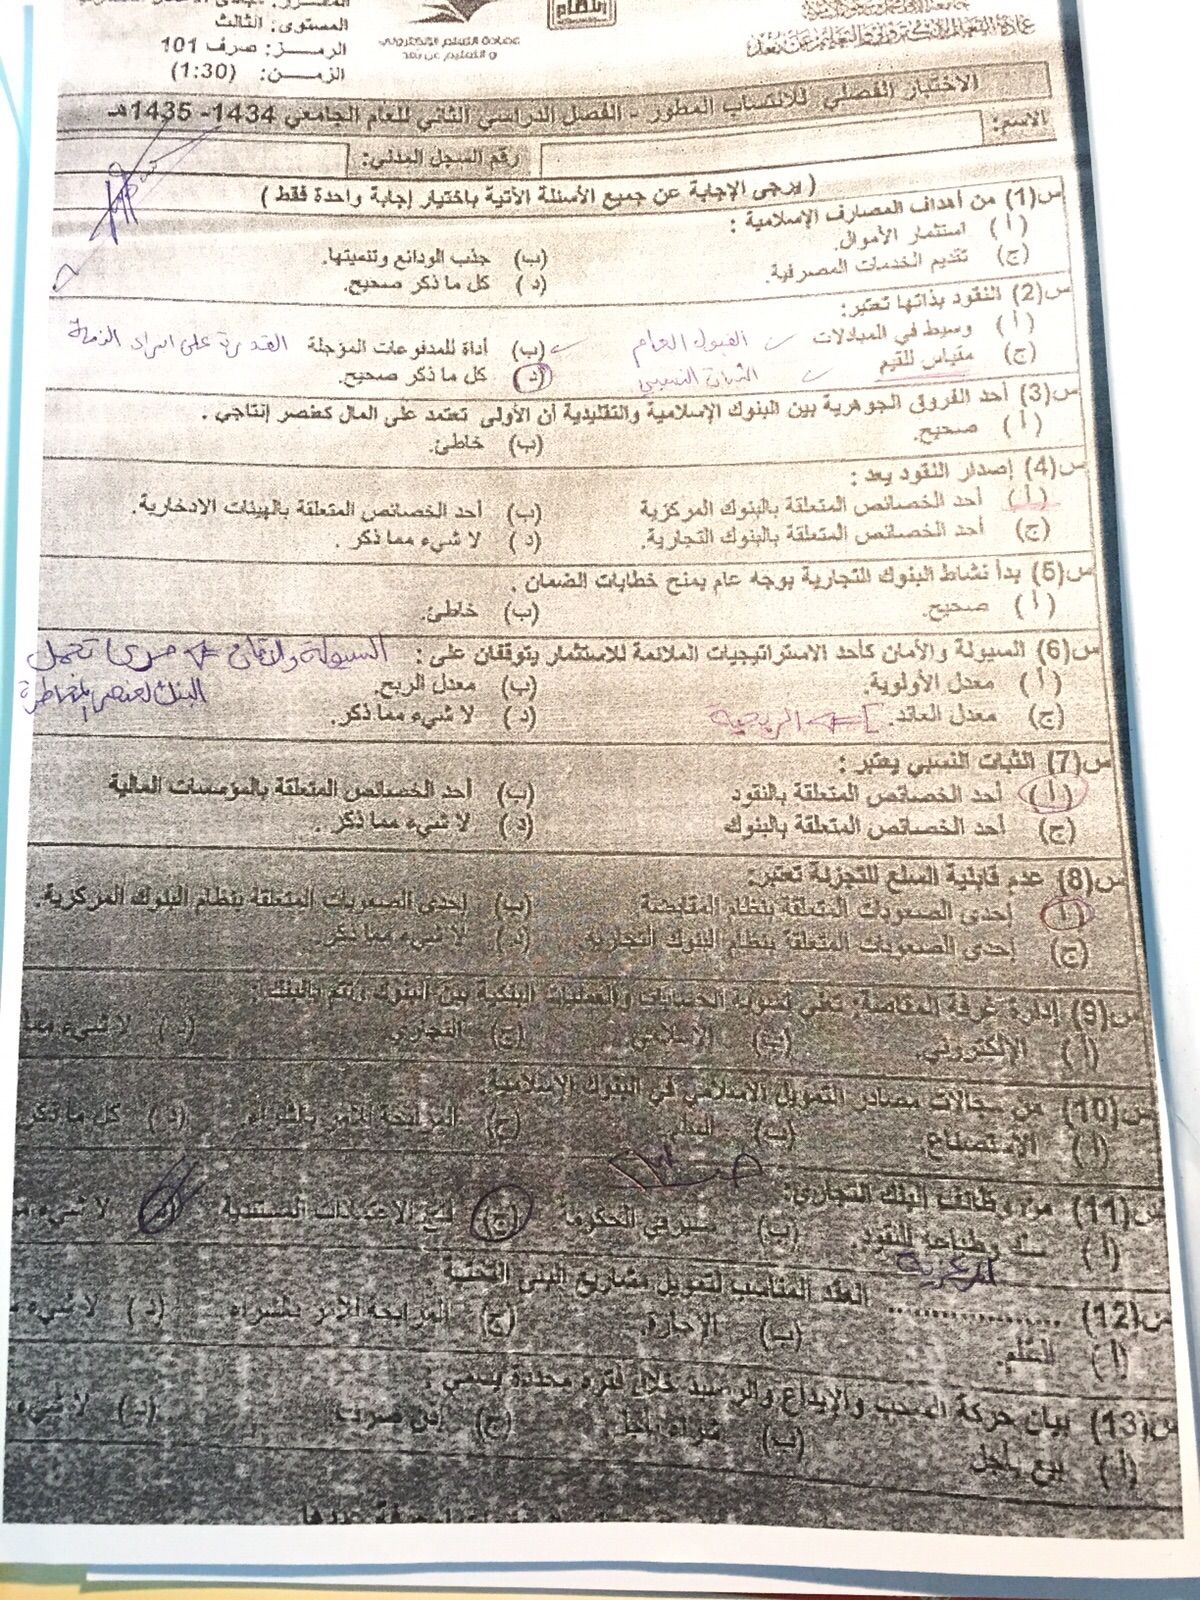 المستوى: الثالث
الرمز: صرف 101
الزمن: (1:30)
عمادة التعلم الإلكتروني
والتعليم عن بعد
الاختبار الفصلي للانتساب المطور - الفصل الدراسي الثاني للعام الجامعي 1434- 1435هـ
الاسم:
رقم السجل المدني:
( يرجى الإجابة عن جميع الأسئلة الآتية باختيار إجابة واحدة فقط )
س(1) من أهداف المصارف الإسلامية :
(أ) استثمار الأموال. (ب) جذب الودائع وتنميتها.
(ج) تقديم الخدمات المصرفية. (د) كل ما ذكر صحيح.
س(2) النقود بذاتها تعتبر:
(أ) وسيط في المبادلات القبول العام (ب) أداة للمدفوعات المؤجلة القدرة على ابراء الذمة
(ج) مقياس للقيم الثبات النسبي (د) كل ما ذكر صحيح.
س(3) أحد الفروق الجوهرية بين البنوك الإسلامية والتقليدية أن الأولى تعتمد على المال كعنصر إنتاجي .
(أ) صحيح. (ب) خاطئ.
س(4) إصدار النقود يعد :
(أ) أحد الخصائص المتعلقة بالبنوك المركزية (ب) أحد الخصائص المتعلقة بالهيئات الادخارية.
(ج) أحد الخصائص المتعلقة بالبنوك التجارية. (د) لا شيء مما ذكر .
س(5) بدأ نشاط البنوك التجارية بوجه عام بمنح خطابات الضمان .
(أ) صحيح. (ب) خاطئ.
س(6) السيولة والأمان كأحد الاستراتيجيات الملائمة للاستثمار يتوقفان على : السيولة والامان ⇐ مدى تحمل
(أ) معدل الأولوية. (ب) معدل الربح. البنك لعنصر المخاطرة
(ج) معدل العائد. ] ⇐ الربحية (د) لا شيء مما ذكر.
س(7) الثبات النسبي يعتبر :
(أ) أحد الخصائص المتعلقة بالنقود (ب) أحد الخصائص المتعلقة بالمؤسسات المالية
(ج) أحد الخصائص المتعلقة بالبنوك (د) لا شيء مما ذكر .
س(8) عدم قابلية السلع للتجزئة تعتبر:
(أ) إحدى الصعوبات المتعلقة بنظام المقايضة (ب) إحدى الصعوبات المتعلقة بنظام البنوك المركزية.
(ج) إحدى الصعوبات المتعلقة بنظام البنوك التجارية. (د) لا شيء مما ذكر.
س(9) إدارة غرفة المقاصة، تعني تسوية الحسابات والعمليات البنكية بين البنوك وتتم بالبنك :
(أ) الإلكتروني. (ب) الإسلامي (ج) التجاري (د) لا شيء مما
س(10) من مجالات مصادر التمويل الإسلامي في البنوك الإسلامية.
(أ) الاستصناع. (ب) السلم. (ج) المرابحة للآمر بالشراء (د) كل ما ذكر
س(11) من وظائف البنك التجاري:
(أ) سك وطباعة النقود. (ب) صيرفي الحكومة (ج) فتح الاعتمادات المستندية (د) لا شيء
المركزية
س(12) ................ العقد المناسب لتمويل مشاريع البنى التحتية .
(أ) السلم. (ب) الإجارة. (ج) المرابحة للآمر بالشراء (د) لا شيء
س(13) بيان حركة السحب والإيداع والرصيد خلال فترة محددة يسمى :
(أ) بيع بأجل (ب) شراء بأجل (ج) إذن صرف (د) لا شيء